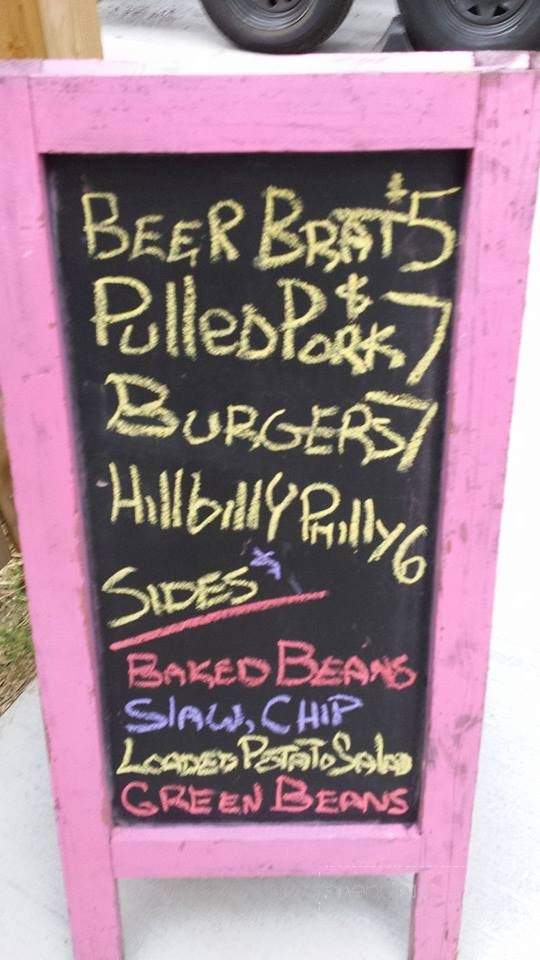 BEER BRAT $5
PulleD PORK $7
BURGERS 7
HillbillY PHilly 6
SIDES
BAKED BEANS
SlAW, CHIP
LOADED POTATO SalaD
GREEN BEANS